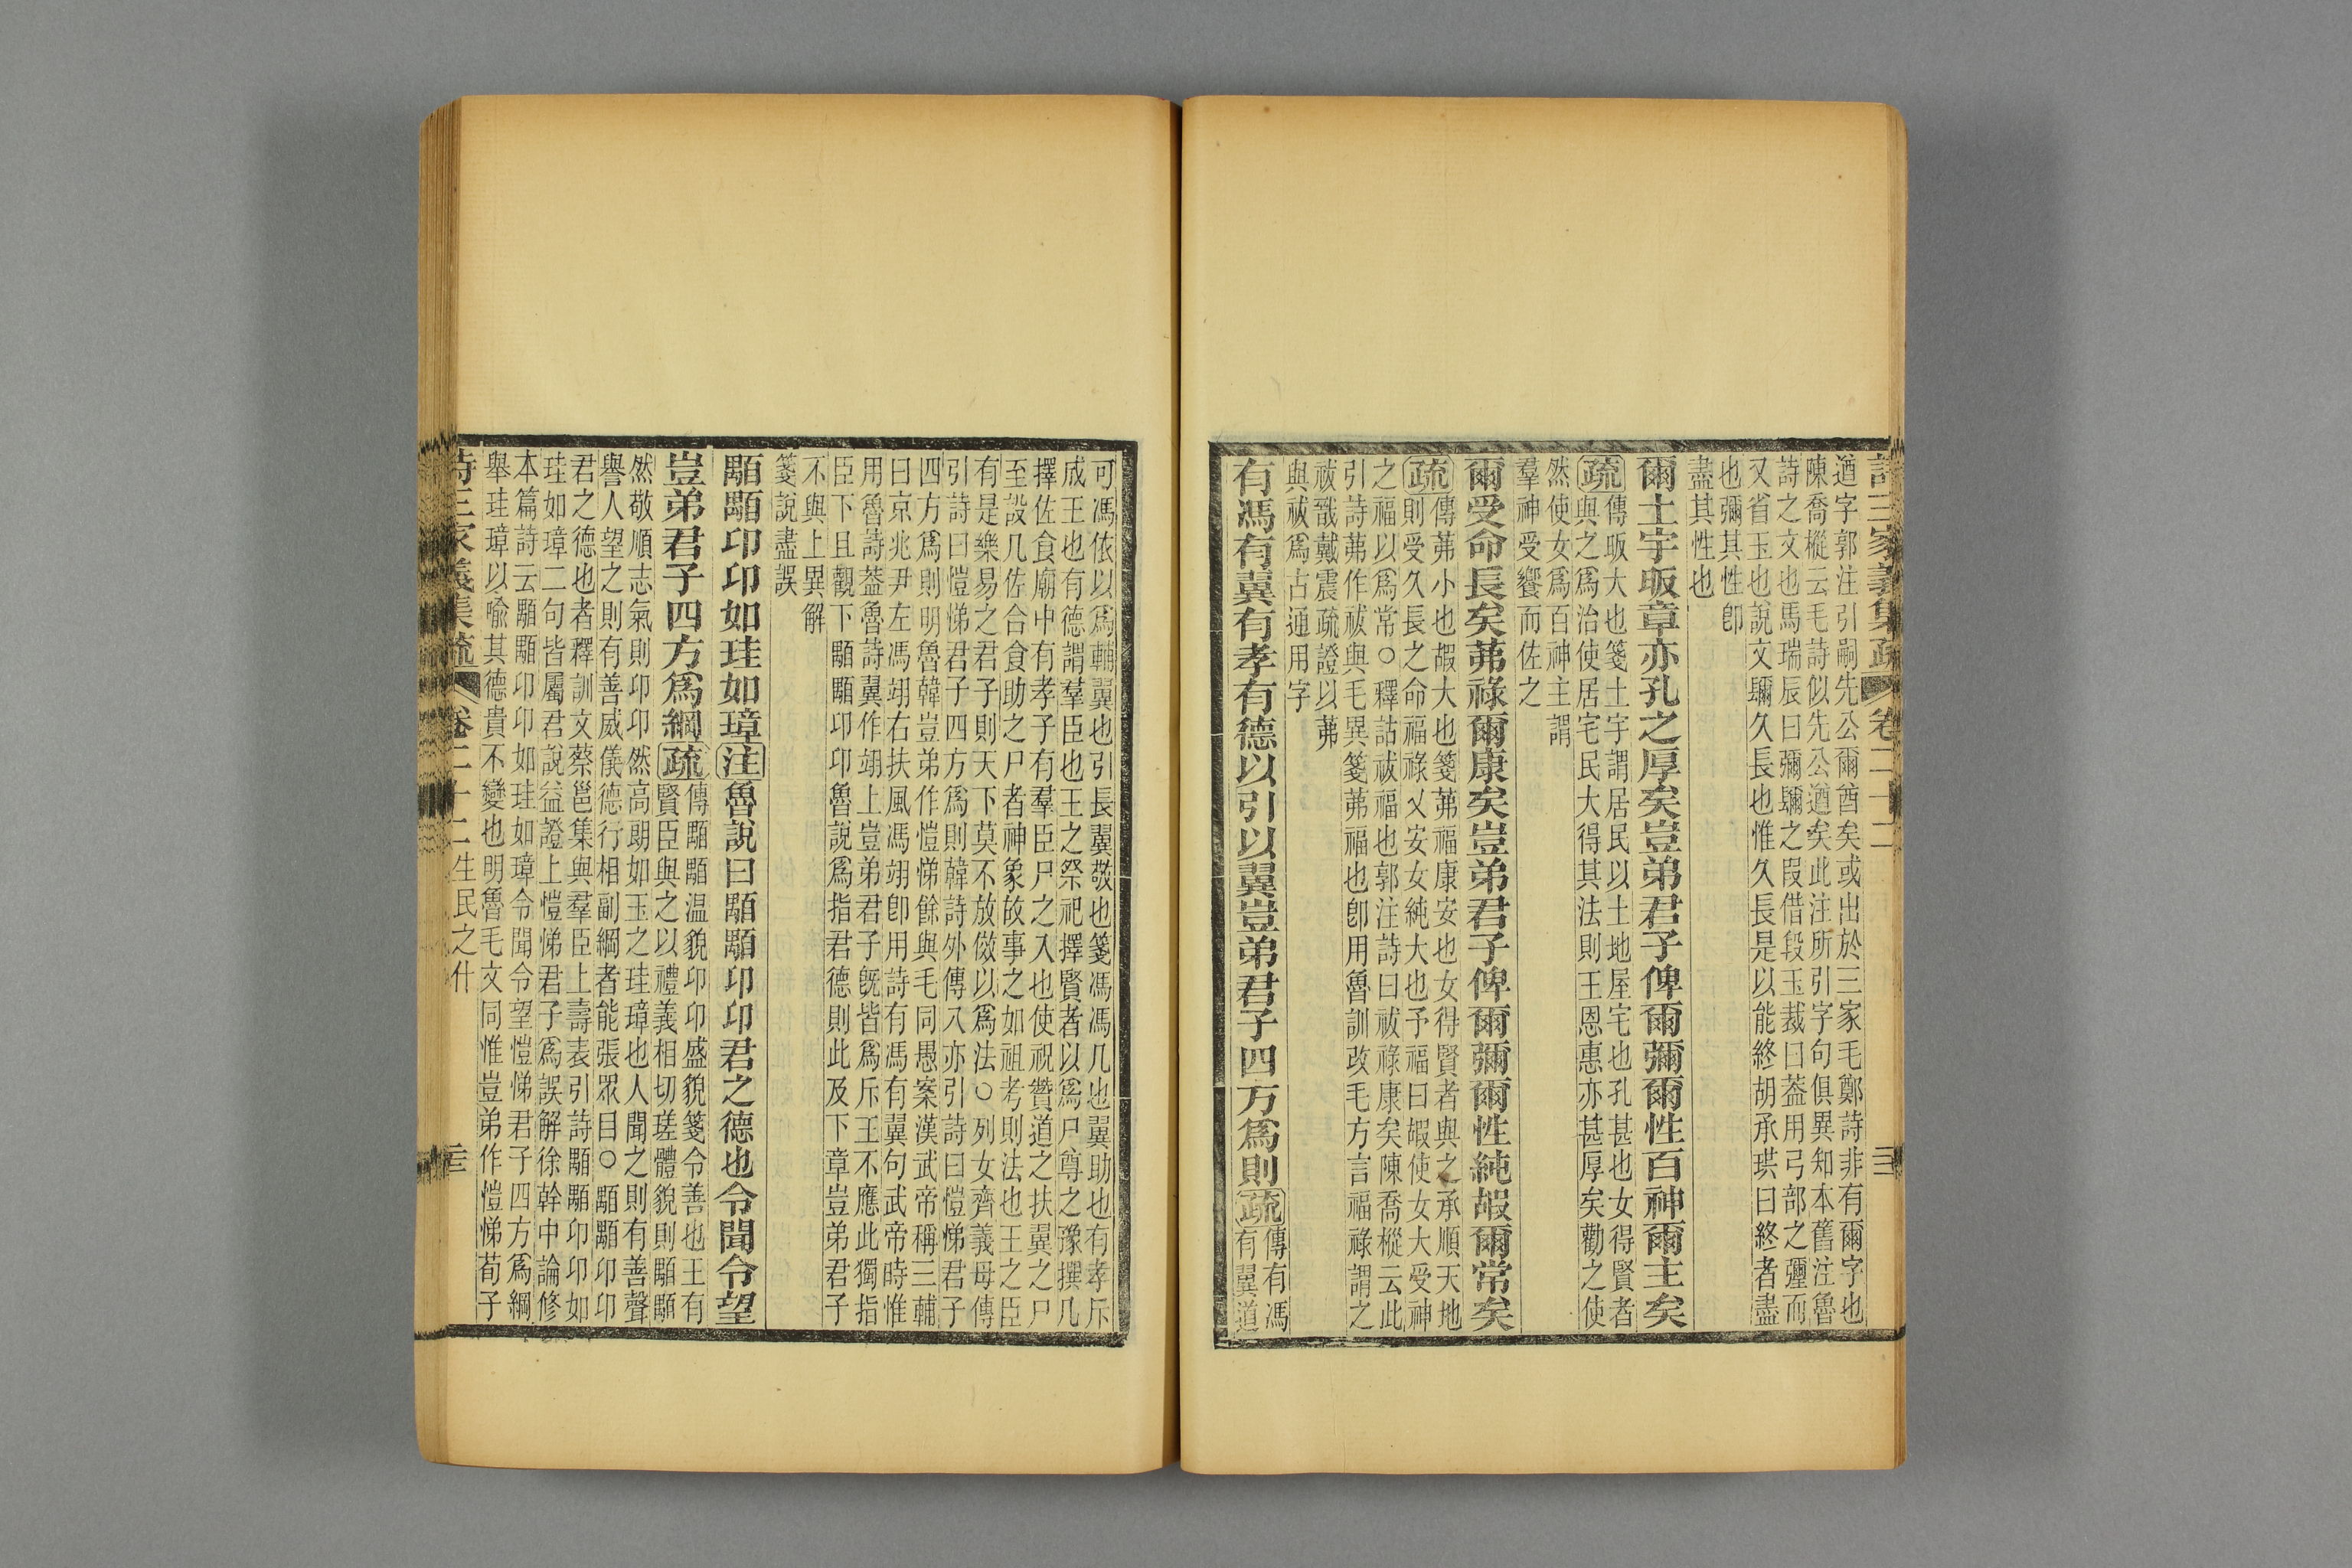 詩三家義集疏 卷二十二
遒字郭注引嗣先公爾酋矣或出於三家毛鄭詩非有爾字也
陳喬樅云毛詩似先公遒矣此注所引字句俱異知本舊注魯
詩之文也馬瑞辰曰彌镾之叚借段玉裁曰葢用弓部之彊而
又省玉也說文镾久長也惟久長是以能終胡承珙曰終者盡
也彌其性卽
盡其性也
爾土宇昄章亦孔之厚矣豈弟君子俾爾彌爾性百神爾主矣
疏傳昄大也箋土宇謂居民以土地屋宅也孔甚也女得賢者
與之爲治使居宅民大得其法則王恩惠亦甚厚矣勸之使
然使女爲百神主謂
羣神受饗而佐之
爾受命長矣茀祿爾康矣豈弟君子俾爾彌爾性純嘏爾常矣
疏傳茀小也嘏大也箋茀福康安也女得賢者與之承順天地
則受久長之命福祿乂安女純大也予福曰嘏使女大受神
之福以爲常○釋詁祓福也郭注詩曰祓祿康矣陳喬樅云此
引詩茀作祓與毛異箋茀福也卽用魯訓改毛方言福祿謂之
祓戩戴震疏證以茀
與祓爲古通用字
有馮有翼有孝有德以引以翼豈弟君子四方爲則疏傳有馮
有翼道
可馮依以爲輔翼也引長翼敬也箋馮馮几也翼助也有孝斥
成王也有德謂羣臣也王之祭祀擇賢者以爲尸尊之豫撰几
擇佐食廟中有孝子有羣臣尸之入也使祝贊道之扶翼之尸
至設几佐合食助之尸者神象故事之如祖考則法也王之臣
有是樂易之君子則天下莫不放傚以爲法○列女齊義母傳
引詩曰愷悌君子四方爲則韓詩外傳八亦引詩曰愷悌君子
四方爲則明魯韓豈弟作愷悌餘與毛同愚案漢武帝稱三輔
曰京兆尹左馮翊右扶風馮翊卽用詩有馮有翼句武帝時惟
用魯詩葢魯詩翼作翊上豈弟君子旣皆爲斥王不應此獨指
臣下且觀下顒顒卬卬魯說爲指君德則此及下章豈弟君子
不與上異解
箋說盡誤
顒顒卬卬如珪如璋注魯說曰顒顒卬卬君之德也令聞令望
豈弟君子四方爲綱疏傳顒顒温貌卬卬盛貌箋令善也王有
賢臣與之以禮義相切瑳體貌則顒顒
然敬順志氣則卬卬然高朗如玉之珪璋也人聞之則有善聲
譽人望之則有善威儀德行相副綱者能張眾目○顒顒卬卬
君之德也者釋訓文蔡邕集與羣臣上壽表引詩顒顒卬卬如
珪如璋二句皆屬君說益證上愷悌君子爲誤解徐幹中論修
本篇詩云顒顒卬卬如珪如璋令聞令望愷悌君子四方爲綱
舉珪璋以喻其德貴不變也明魯毛文同惟豈弟作愷悌荀子
詩三家義集疏 卷二十二生民之什